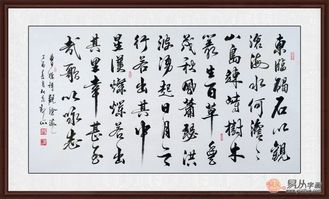 東臨碣石以觀
滄海水何澹々
山島竦峙樹木
叢生百草豐
茂秋風蕭瑟洪
波湧起日月之
行若出其中
星漢燦爛若出
其里幸甚至
哉歌以詠志
曹操詩觀滄海
易从字画